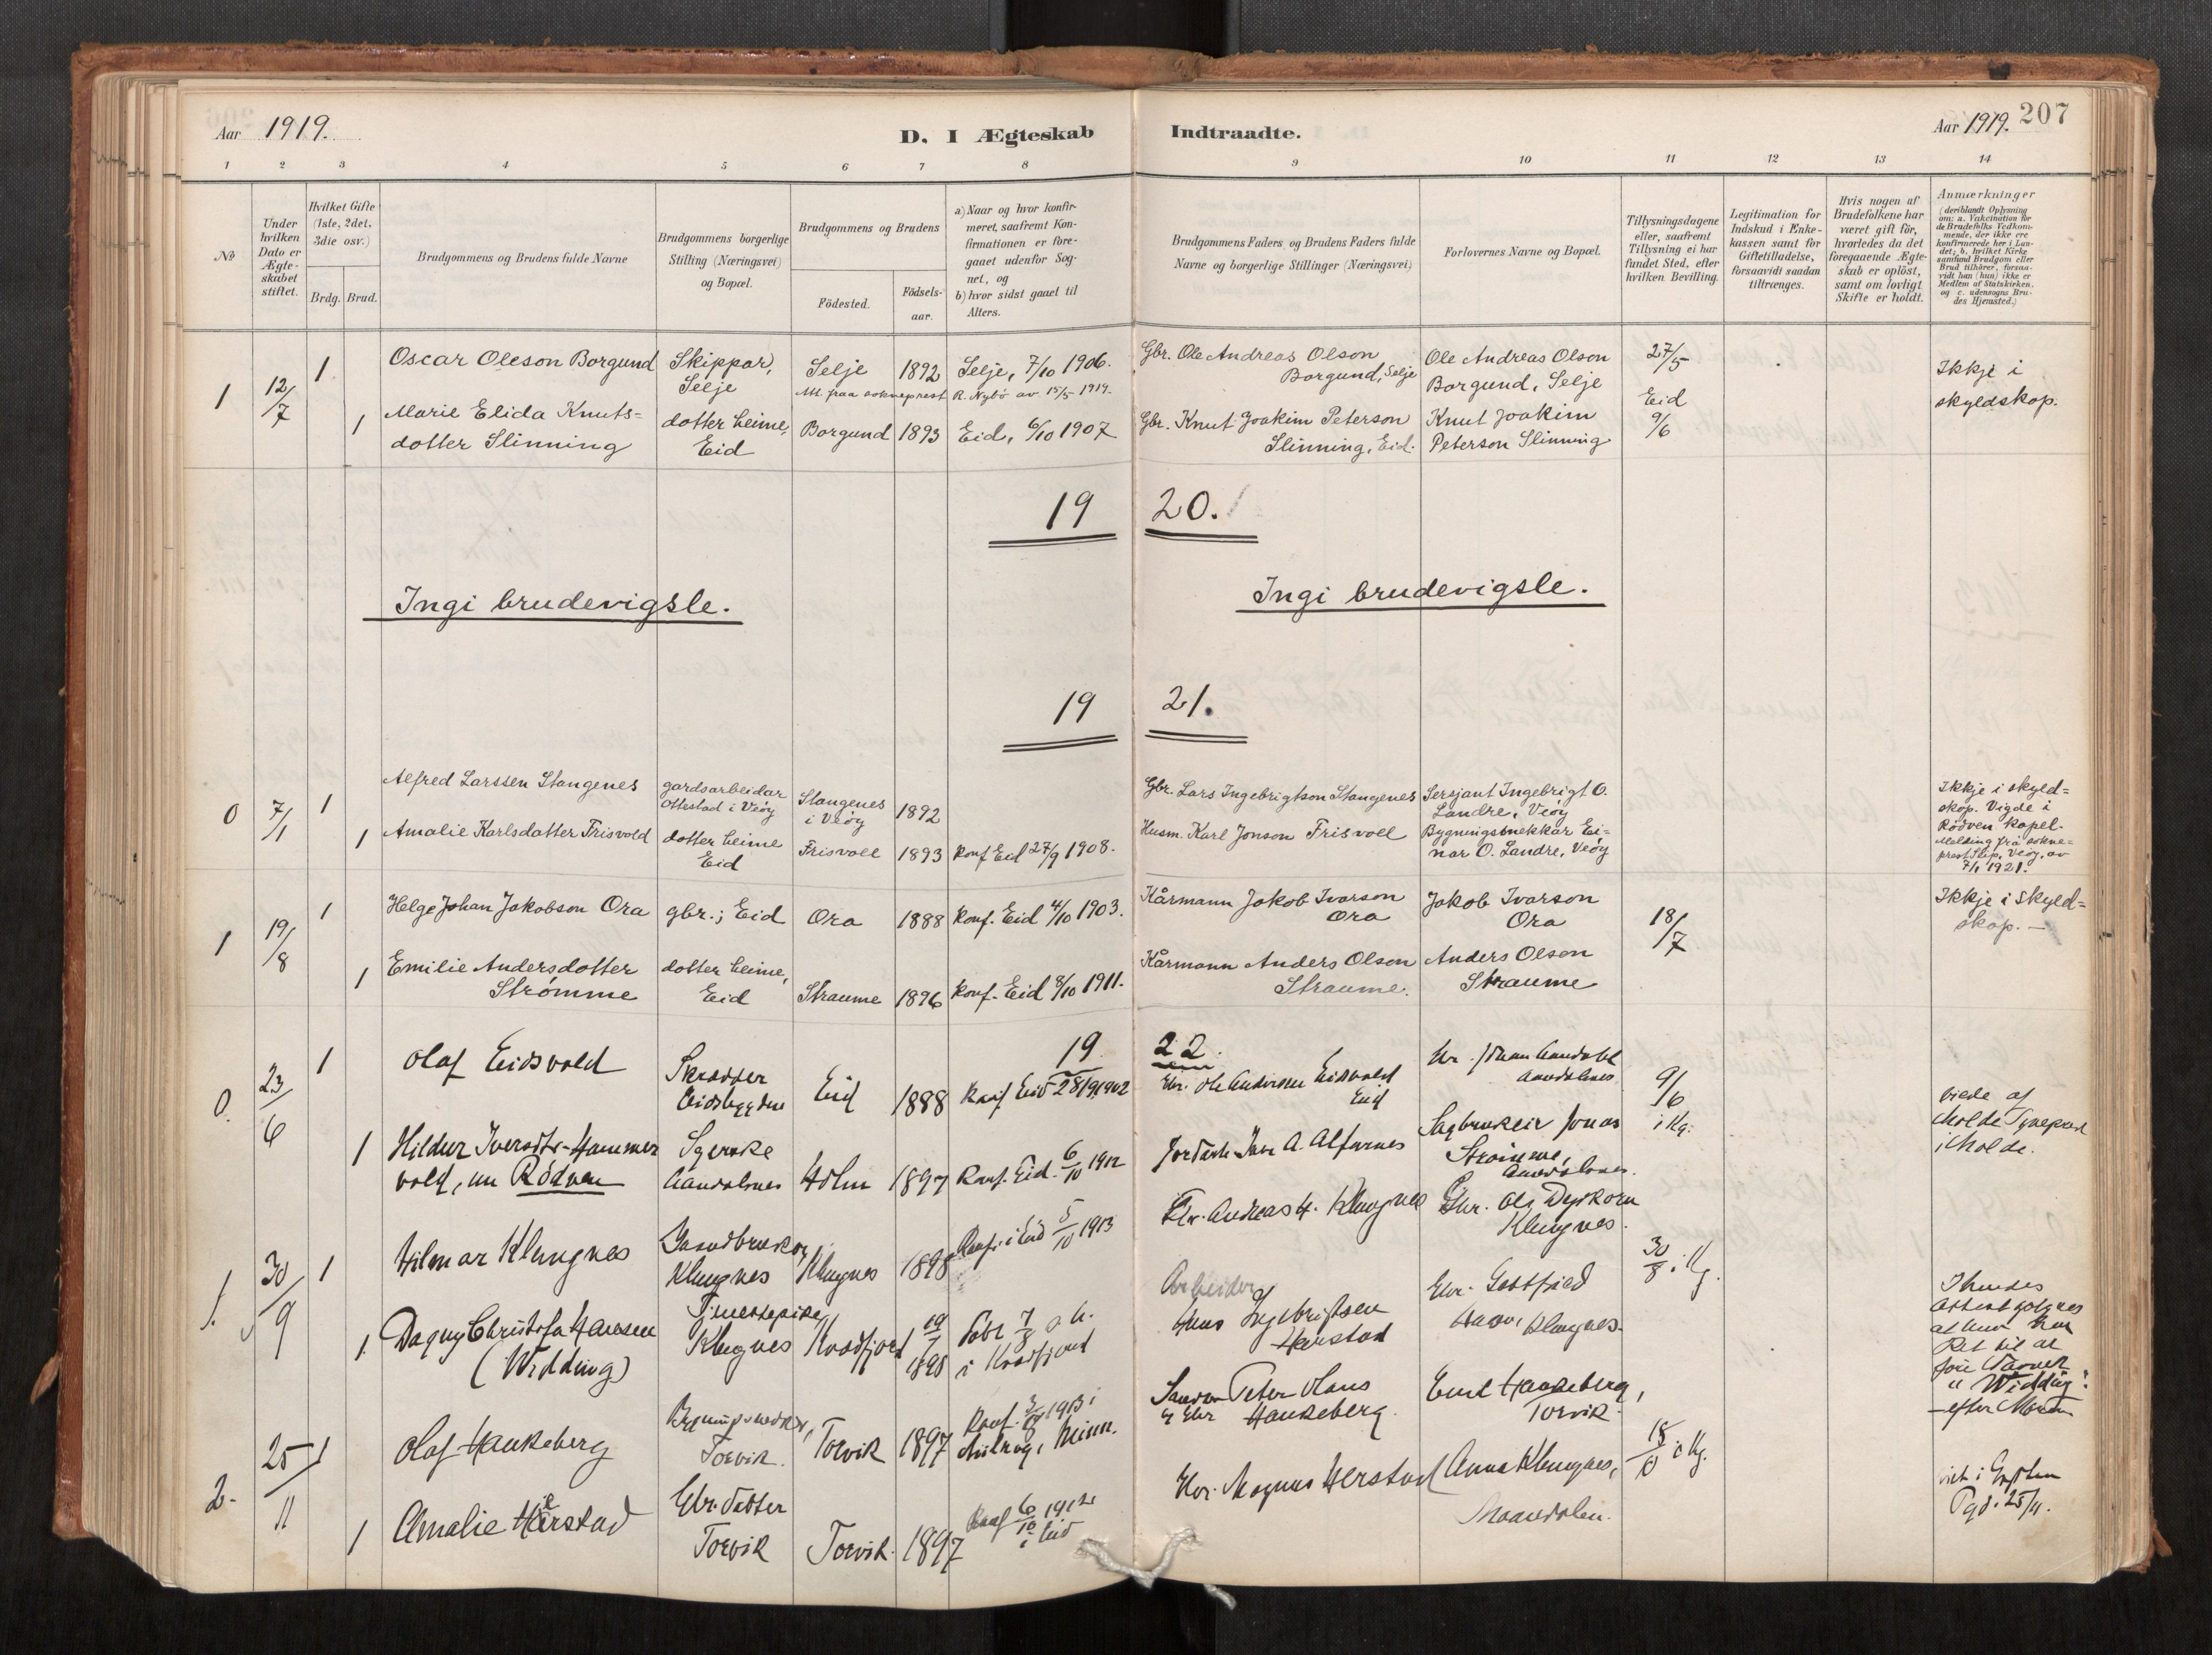 Aar 1919.
D. I Ægteskab
Indtraadte.
Aar 1919. 207
1 2 3 4 5 6 7 8 9 10 11 12 13 14
No
Under hvilken Dato er Ægteskabet stiftet.
Hvilket Gifte (1ste, 2det, 3die osv.)
Brdg. Brud.
Brudgommens og Brudens fulde Navne
Brudgommens borgerlige Stilling (Næringsvei) og Bopæl.
Brudgommens og Brudens
Födested.
Födselsaar.
a) Naar og hvor konfirmeret, saafremt Konfirmationen er foregaaet udenfor Sognet, og
b) hvor sidst gaaet til Alters.
Brudgommens Faders og Brudens Faders fulde Navne og borgerlige Stillinger (Næringsvei)
Forlovernes Navne og Bopæl.
Tillysningsdagene eller, saafremt Tillysning ei har fundet Sted, efter hvilken Bevilling.
Legitimation for Indskud i Enkekassen samt for Giftetilladelse, forsaavidt saadan tiltrænges.
Hvis nogen af Brudefolkene har været gift för, hvorledes da det foregaaende Ægteskab er oplöst, samt om lovligt Skifte er holdt.
Anmærkninger
(deriblandt Oplysning om: a. Vakcination for de Brudefolks Vedkommende, der ikke ere konfirmerede her i Landet; b. hvilket Kirkesamfund Brudgom eller Brud tilhörer, forsaavidt han (hun) ikke er Medlem af Statskirken, og c. udensogns Brudes Hjemsted.)
1 12/7 1 Oscar Oleson Borgund Skippar, Selje Selje 1892 Selje, 7/10 1906. Gbr. Ole Andreas Olson Borgund, Selje Ole Andreas Olson Borgund, Selje 27/5 Eid Ikkje i skyldskop.
Att. fraa sokneprest R. Nybö av 15/5 1919.
1 Marie Elida Knutsdotter Slinning dotter heime, Eid Borgund 1893 Eid, 6/10 1907 Gbr. Knut Joakim Peterson Slinning, Eid. Knut Joakim Peterson Slinning 9/6
19 20.
Ingi brudevigsle. Ingi brudevigsle.
19 21.
0 7/1 1 Alfred Larssen Stangenes gardsarbeidar Ottestad i Veöy Stangenes i Veöy 1892 Gbr. Lars Ingebrigtson Stangenes Sersjant Ingebrigt O. Landre, Veöy Ikkje i skyldskop. Vigde i Rödven kapel. Melding frå sokneprest Slip, Veöy, av 7/1 1921.
1 Amalie Karlsdatter Frisvold dotter heime Eid Frisvoll 1893 konf Eid 27/9 1908. Husm. Karl Jonson Frisvoll Bygningssnekkar Einar O. Landre, Veöy
1 19/8 1 Helge Johan Jakobson Ora gbr.; Eid Ora 1888 konf. Eid 4/10 1903. Kårmann Jakob Ivarson Ora Jakob Ivarson Ora 18/7 Ikkje i skyldskop. —
1 Emilie Andersdotter Strømme dotter heime, Eid Straume 1896 konf. Eid 8/10 1911. Kårmann Anders Olson Straume. Anders Olson Straume
19 22.
0. 23/6 1 Olaf Eidsvold Skrædder Eidsbygden Eid 1888 Konf. Eid 28/9 1902 Gbr. Ole Andersen Eidsvold Eid 9/6 i Kg. viede af i Molde.
1 Hildur Iversdtr. Hammervold, nu Rödven Aandalsnes Holm 1897 Konf. Eid 6/10 1912 Iver A. Alfarnes Jonas Strömme, Aandalsnes.
1. 30/9 1 Hilmar Klungnes Klungnes Klungnes 1898 Konf. i Eid 5/10 1913 Gbr. Andreas H. Klungnes Gbr. Ole Klungnes. 30/8 i Kg.
1. Dagny Christofa Hansen (Widding) Tjenestepike, Klungnes Kvædfjord 19/7 1898 i Kvædfjord Arbeider Hans Ingebrigtsen Harstad Gbr. Klungnes. at hun har Ret til at före Navnet "Widding" efter Moren
2. 25/11 1 Olaf Haukeberg Torvik. Torvik 1897 Konf. 1913 i Minn. Peter Haukeberg. Emil Haukeberg, Torvik. 18/10 i Kg. 25/11.
1 Amalie Herstad Gbr. datter Torvik Torvik. 1897 Konf 6/10 1912 i Eid Gbr. Magnus Herstad Anna Klungnes, Maandalen.